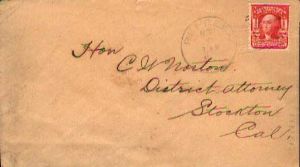 Hon
C W Norton
District Attorney
Stockton
Cal.